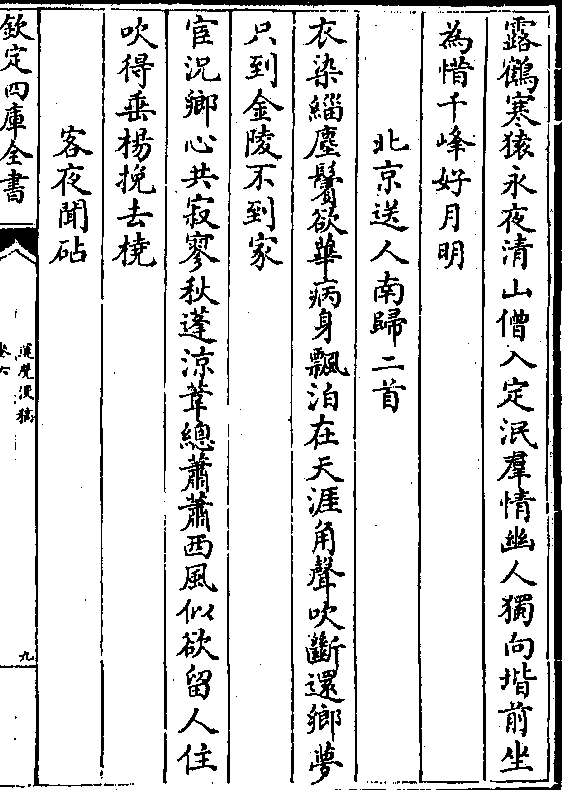 露鶴寒猿永夜清山僧入定泯羣情幽人獨向堦前坐
為惜千峰好月明
北京送人南歸二首
衣染緇塵鬢欲華病身飄泊在天涯角聲吹斷還鄉夢
只到金陵不到家
宦況鄉心共寂寥秋蓬涼葦總蕭蕭西風似欲留人住
吹得垂楊挽去橈
客夜聞砧
欽定四庫全書
卷六
九